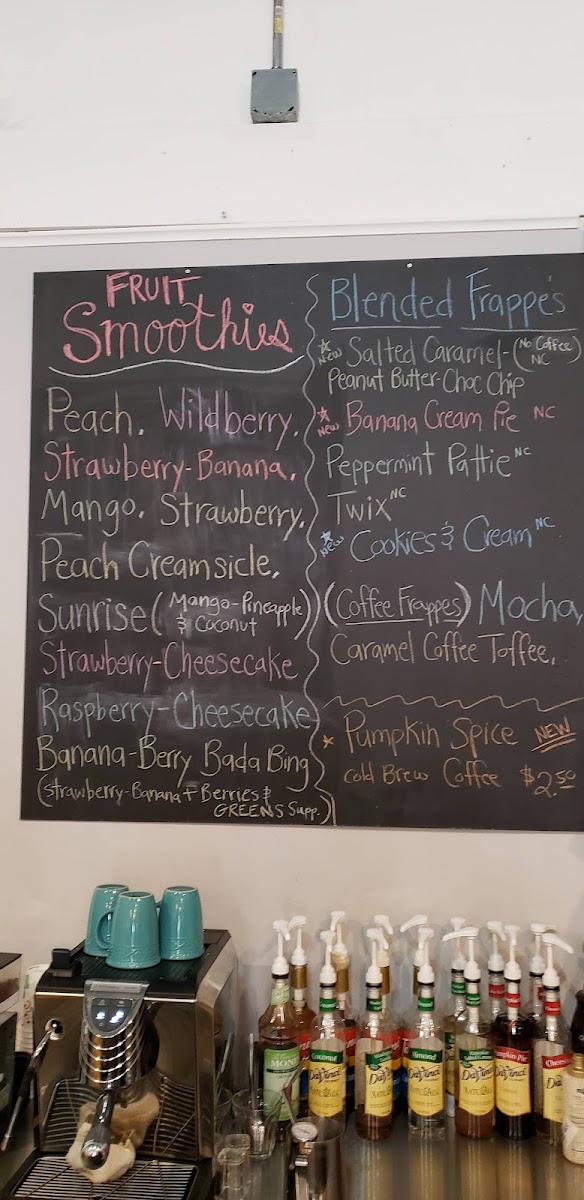 FRUIT
Smoothies
Peach, Wildberry,
Strawberry-Banana,
Mango, Strawberry,
Peach Creamsicle,
Sunrise (Mango-Pineapple
& Coconut)
Strawberry-Cheesecake
Raspberry-Cheesecake
Banana-Berry Bada Bing
(Strawberry-Banana + Berries &
GREENS Supp.)
Blended Frappe's
New Salted Caramel- (No Coffee)
NC
Peanut Butter-Choc Chip
New Banana Cream Pie NC
Peppermint Pattie NC
Twix NC
New Cookies & Cream NC
(Coffee Frappes) Mocha,
Caramel Coffee Toffee,
Pumpkin Spice NEW
Cold Brew Coffee $2.50
MONIN
Coconut
DaVinci
DaVinci
Almond
DaVinci
DaVinci
Pumpkin Pie
DaVinci